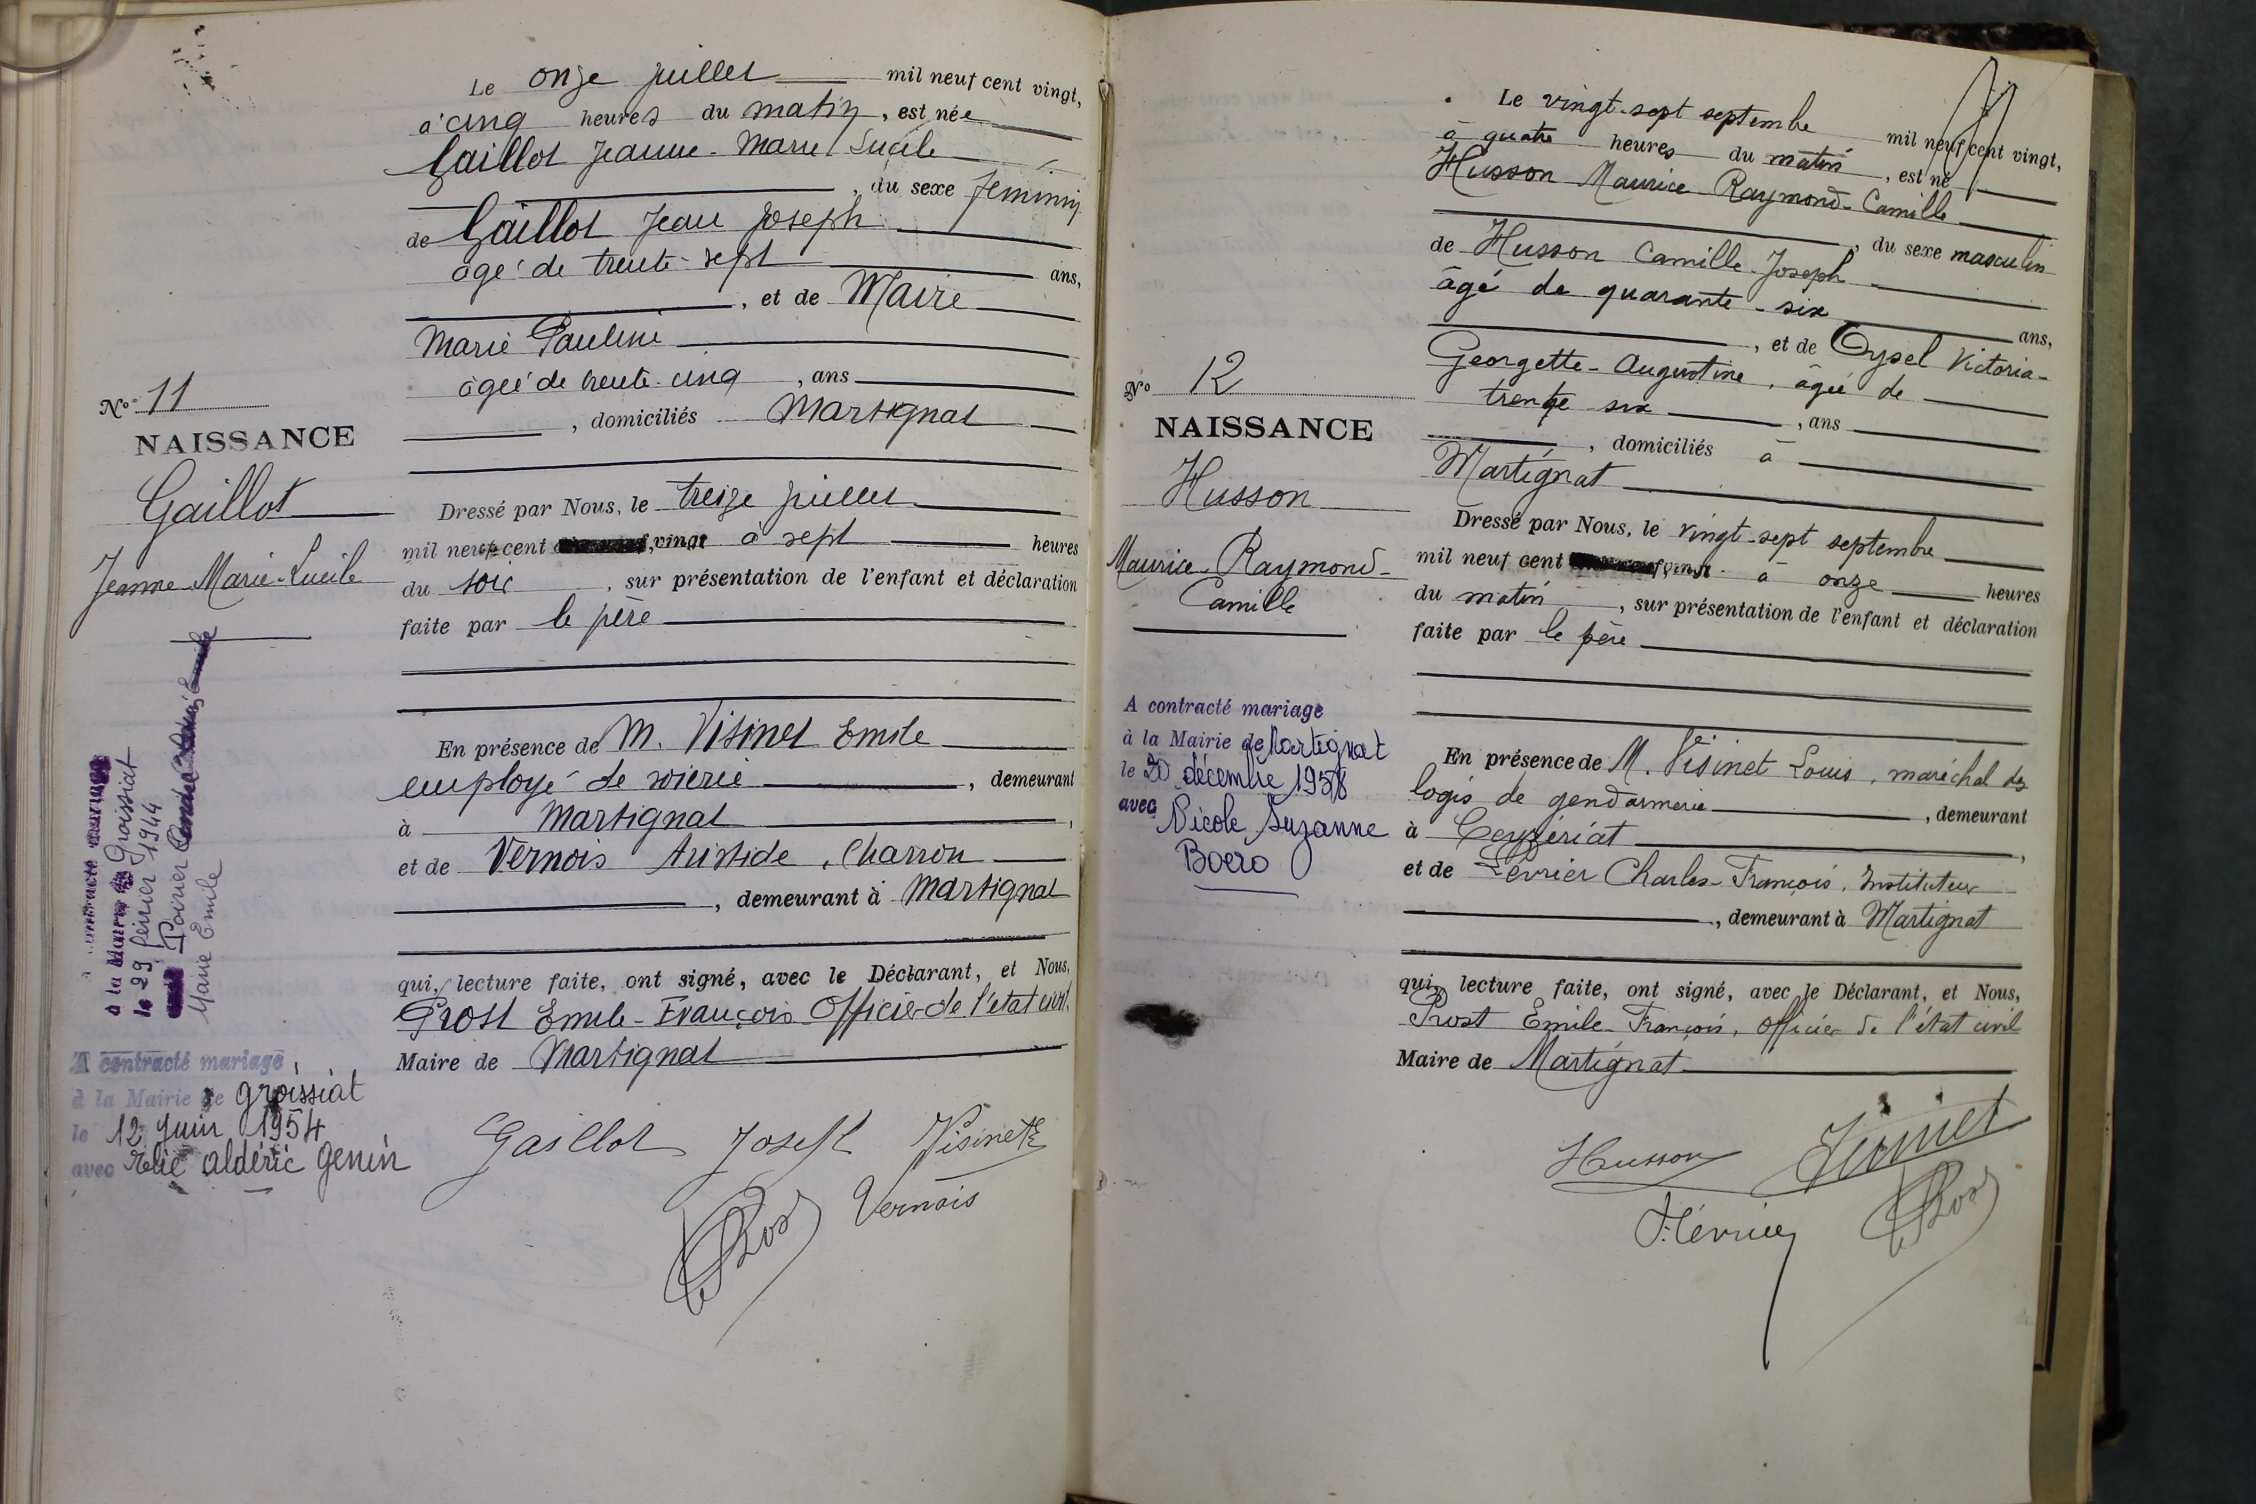 Le onze juillet mil neuf cent vingt,
à cinq heures du matin, est née
Gaillot Jeanne-Marie Lucile
, du sexe féminin
de Gaillot Jean Joseph
âgé de trente-sept ans,
, et de Maire
Marie Pauline
âgée de trente-cinq, ans
, domiciliés Martignat
N° 11
NAISSANCE
Gaillot
Jeanne-Marie-Lucile
Dressé par Nous, le treize juillet
mil neuf cent vingt à sept heures
du soir, sur présentation de l'enfant et déclaration
faite par le père
En présence de M. Visinet Emile
employé de soierie, demeurant
à Martignat,
et de Vernois Aristide, Charron
, demeurant à Martignat
qui, lecture faite, ont signé, avec le Déclarant, et Nous,
Prost Emile-François Officier de l'état civil,
Maire de Martignat
à la Mairie Groissiat
le 29 février 1944
Poirier
Marie Emile
A contracté mariage
à la Mairie de Groissiat
le 12 juin 1954
avec Elie aldéric Genin
Gaillot Joseph VisinetE
Vernois
Prost
Le vingt-sept septembre mil neuf cent vingt,
à quatre heures du matin, est né
Husson Maurice Raymond-Camille
, du sexe masculin
de Husson Camille-Joseph
âgé de quarante-six ans,
, et de Oysel Victoria-
Georgette-Augustine, âgée de
trente six, ans
, domiciliés à
Martignat
N° 12
NAISSANCE
Husson
Maurice-Raymond-
Camille
Dressé par Nous, le vingt-sept septembre
mil neuf cent vingt à onze heures
du matin, sur présentation de l'enfant et déclaration
faite par le père
A contracté mariage
à la Mairie de Martignat
le 20 décembre 1958
avec Nicole Suzanne
Boero
En présence de M. Visinet Louis, maréchal des
logis de gendarmerie, demeurant
à Ceyzériat,
et de Févrièr Charles-François, Instituteur
, demeurant à Martignat
qui, lecture faite, ont signé, avec le Déclarant, et Nous,
Prost Emile-François, officier de l'état civil
Maire de Martignat
Husson Visinet
Prost